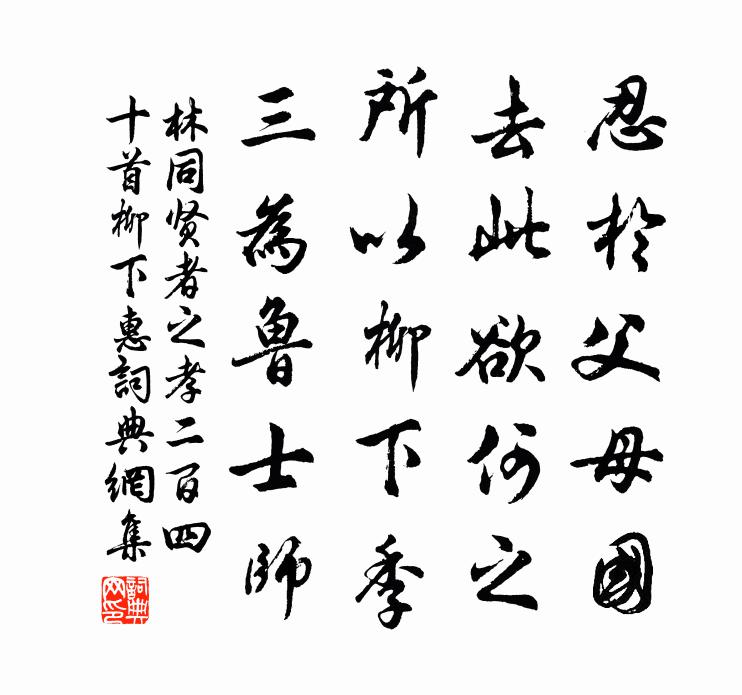 忍於父母國
去此欲何之
所以柳下季
三為魯士師
林同贤者之孝二百四
十首柳下惠詞典網集
詞典網印